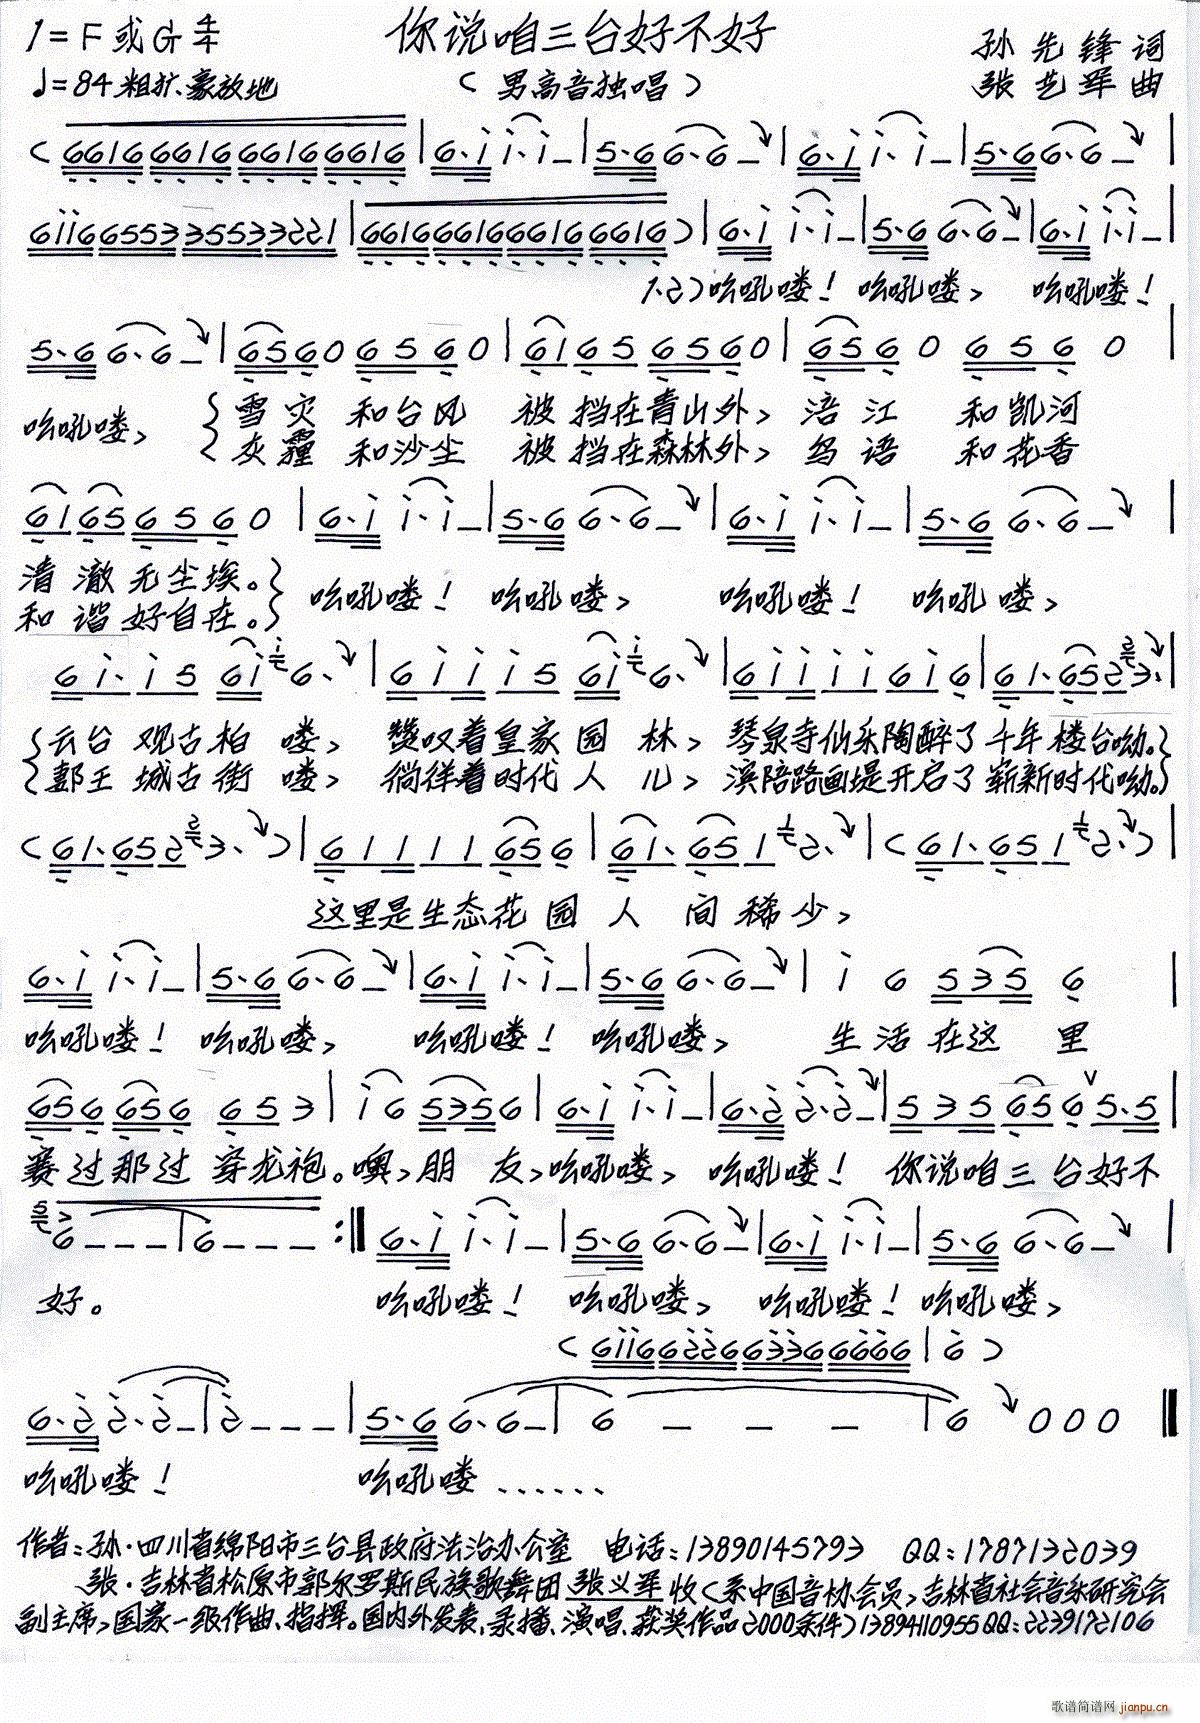 你说咱三台好不好
1=F或G 4/4
♩=84 粗犷、豪放地
(男高音独唱)
孙先锋 词
张艺军 曲
(6616 6616 6616 6616 | 6·i i·i– | 5·6 6·6– | 6·i i·i– | 5·6 6·6– |
6ii6 6553 3553 3221 | 6616 6616 6616 6616) | 6·i i·i– | 5·6 6·6– | 6·i i·i– |
1.2)吆吼喽! 吆吼喽, 吆吼喽!
5·6 6·6– | 6560 6560 | 6165 6560 | 6560 6560 |
吆吼喽, 雪灾 和台风 被挡在青山外, 涪江 和凯河
灰霾 和沙尘 被挡在森林外, 鸟语 和花香
6165 6560 | 6·i i·i– | 5·6 6·6– | 6·i i·i– | 5·6 6·6– |
清澈无尘埃。 吆吼喽! 吆吼喽, 吆吼喽! 吆吼喽,
和谐好自在。
6i·i5 6i6· | 6iii5 6i6· | 6iiii6i6 | 61·6523· |
云台观古柏喽, 赞叹着皇家园林, 琴泉寺仙乐陶醉了千年楼台呦。
郪王城古街喽, 徜徉着时代人儿, 滨陪路画堤开启了崭新时代呦。
(61·6523·) | 61111656 | 61·6512· | (61·6512·) |
这里是生态花园人间稀少,
6·i i·i– | 5·6 6·6– | 6·i i·i– | 5·6 6·6– | i 6 535 6 |
吆吼喽! 吆吼喽, 吆吼喽! 吆吼喽, 生活在这里
656 656 653 | i6 5356 | 6·i i·i– | 6·2 2·2– | 535 656 5·5 |
赛过那过穿龙袍。噢,朋友,吆吼喽, 吆吼喽! 你说咱三台好不
6––– | 6––– :‖ 6·i i·i– | 5·6 6·6– | 6·i i·i– | 5·6 6·6– |
好。 吆吼喽! 吆吼喽, 吆吼喽! 吆吼喽,
(6ii6 6226 6336 6666 | 6)
6·2 2·2– | 2––– | 5·6 6·6– | 6––– | 6 000 ‖
吆吼喽! 吆吼喽......
作者:孙·四川省绵阳市三台县政府法治办公室 电话:13890145793 QQ:1787132039
张·吉林省松原市郭尔罗斯民族歌舞团 张义军 收(系中国音协会员,吉林省社会音乐研究会
副主席,国家一级作曲、指挥。国内外发表,录播、演唱、获奖作品2000余件)13894110955QQ:2239172106
歌谱简谱网 jianpu.cn